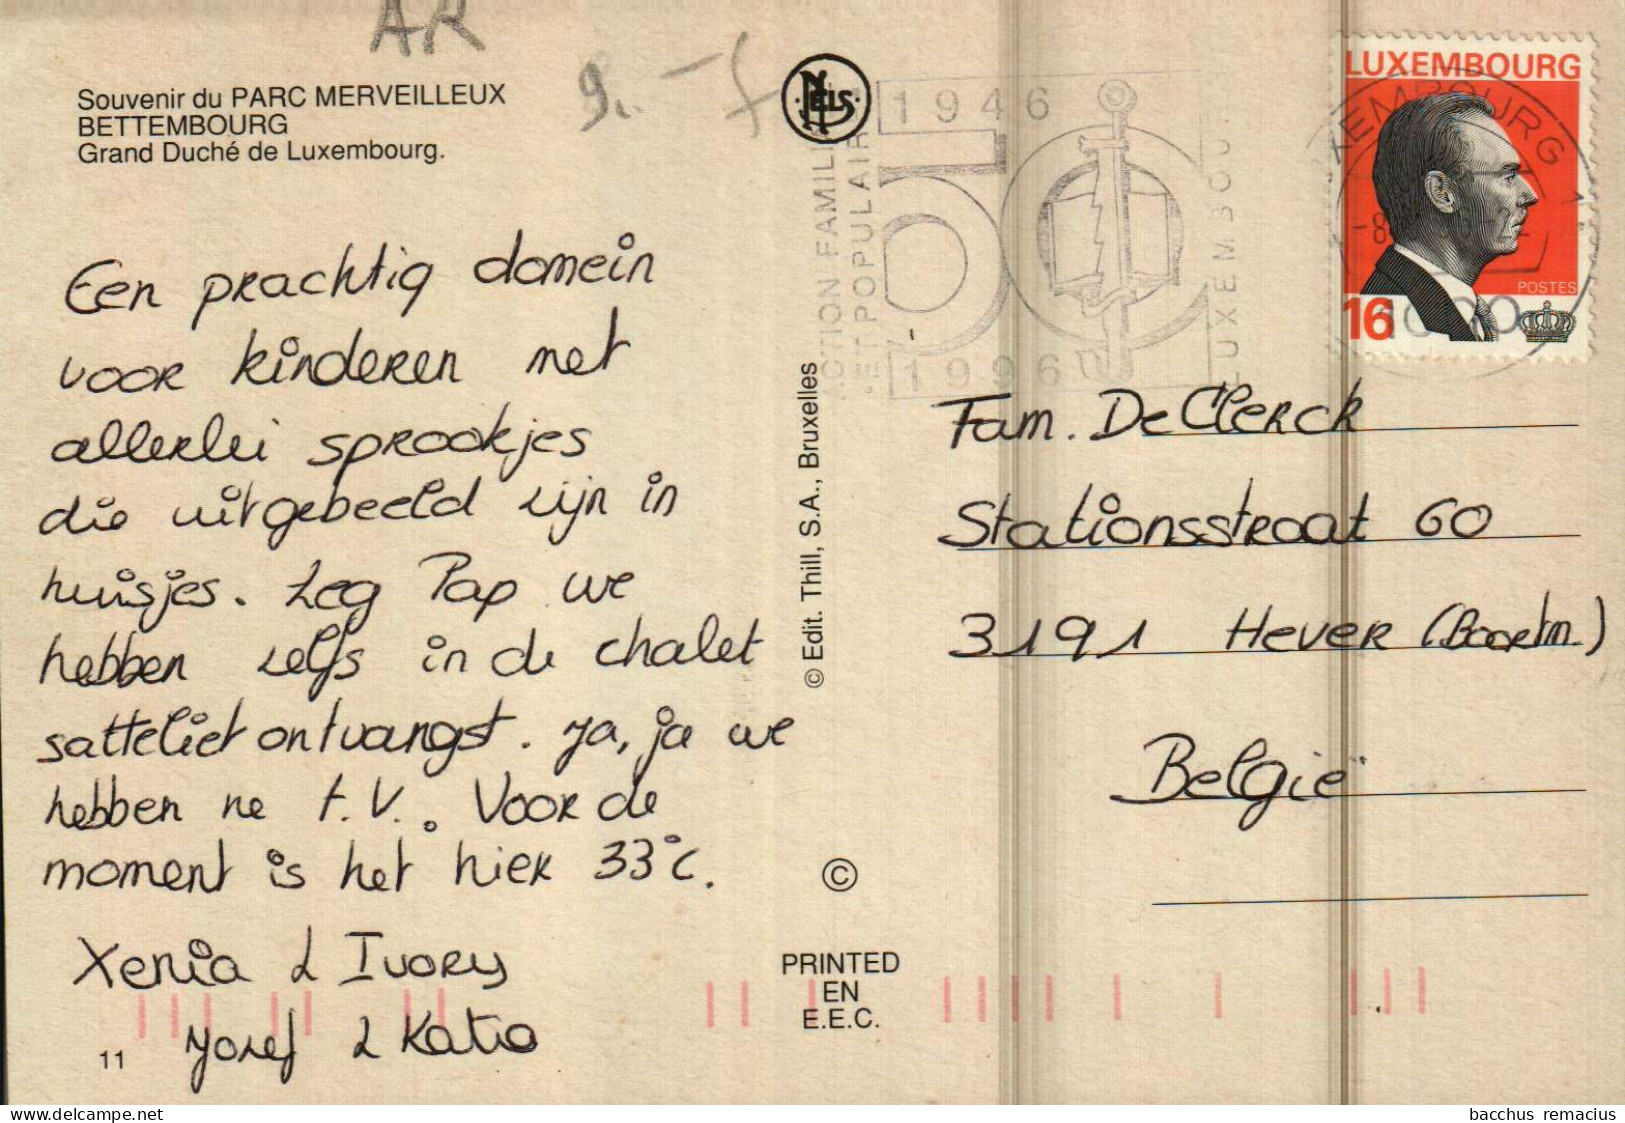 AR
9.-
Souvenir du PARC MERVEILLEUX
BETTEMBOURG
Grand Duché de Luxembourg.
Een prachtig domein
voor kinderen met
allerlei sprookjes
die uitgebeeld zijn in
huisjes. Zeg Pap we
hebben zelfs in de chalet
satteliet ontvangst. Ja, ja we
hebben ne t.V. Voor de
moment is het hier 33°C.
Xenia & Ivory
Josef & Katia
11
NELS
© Edit. Thill, S.A., Bruxelles
©
PRINTED
EN
E.E.C.
1946
50
1996
ACTION FAMILIALE
ET POPULAIRE
LUXEMBOURG
LUXEMBOURG
POSTES
16
Fam. De Clerck
Stationsstraat 60
3191 Hever (Boortm.)
België
www.delcampe.net
bacchus remacius